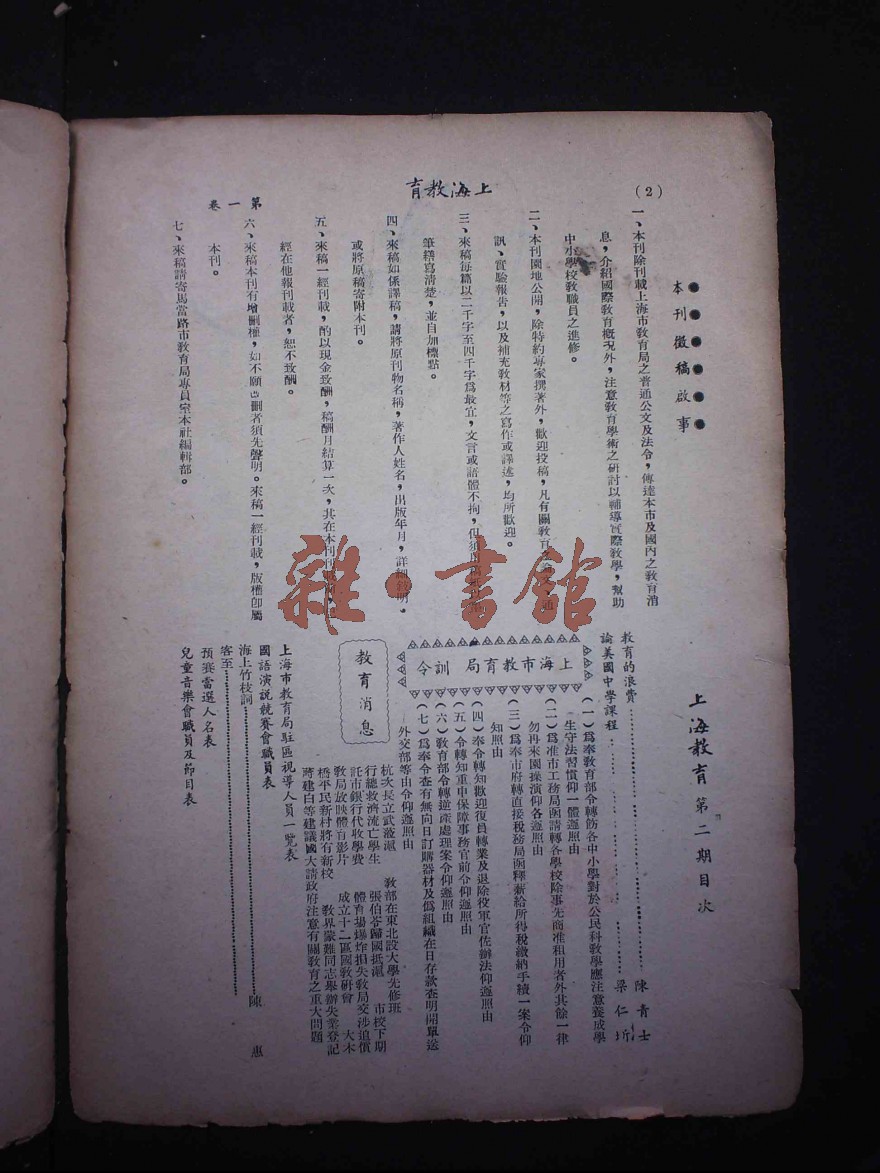 (2)
上海教育
第一卷
本刊徵稿啟事
一、本刊除刊載上海市教育局之普通公文及法令，傳達本市及國內之教育消
息，介紹國際教育概況外，注意教育學術之研討以輔導實際教學，幫助
中小學校教職員之進修。
二、本刊園地公開，除特約專家撰著外，歡迎投稿，凡有關教育
訊、實驗報告，以及補充教材等之寫作或譯述，均所歡迎。
三、來稿每篇以二千字至四千字為最宜，文言或語體不拘，但須
筆繕寫清楚，並自加標點。
四、來稿如係譯稿，請將原刊物名稱，著作人姓名，出版年月，詳細註明，
或將原稿寄附本刊。
五、來稿一經刊載，酌以現金致酬，稿酬月結算一次，其在本刊刊
經在他報刊載者，恕不致酬。
六、來稿本刊有增刪權，如不願刪者須先聲明。來稿一經刊載，版權即屬
本刊。
七、來稿請寄馬當路市教育局專員室本社編輯部。
上海教育第二期目次
教育的浪費……………………陳青士
論美國中學課程……………………梁仁圻
上海市教育局訓令
(一)為奉教育部令轉飭各中小學對於公民科教學應注意養成學
生守法習慣仰一體遵照由
(二)為准市工務局函請轉各學校除事先商准租用者外其餘一律
勿再來園操演仰各遵照由
(三)為奉市府轉直接稅務局函釋薪給所得稅繳納手續一案令仰
知照由
(四)奉令轉知歡迎復員轉業及退除役軍官佐辦法仰遵照由
(五)令轉知重申保障事務官前令仰遵照由
(六)教育部令轉逆產處理案令仰遵照由
(七)為奉令查有無向日訂購器材及偽組織在日存款查明開單送
外交部等由令仰遵照由
教育消息
杭次長立武蒞滬　教部在東北設大學先修班
行總救濟流亡學生　張伯苓歸國抵滬　市校下期
託市銀行代收學費　體育場爆炸損失教局交涉追償
教局放映體育影片　成立十二區國教研會　大木
橋平民新村將有新校　教界蒙難同志舉辦失業登記
蔣建白等建議國大請政府注意有關教育之重大問題
上海市教育局駐區視導人員一覽表
國語演說競賽會職員表
海上竹枝詞……………………陳　惠
客至……………………
預賽當選人名表
兒童音樂會職員及節目表
雜·書館